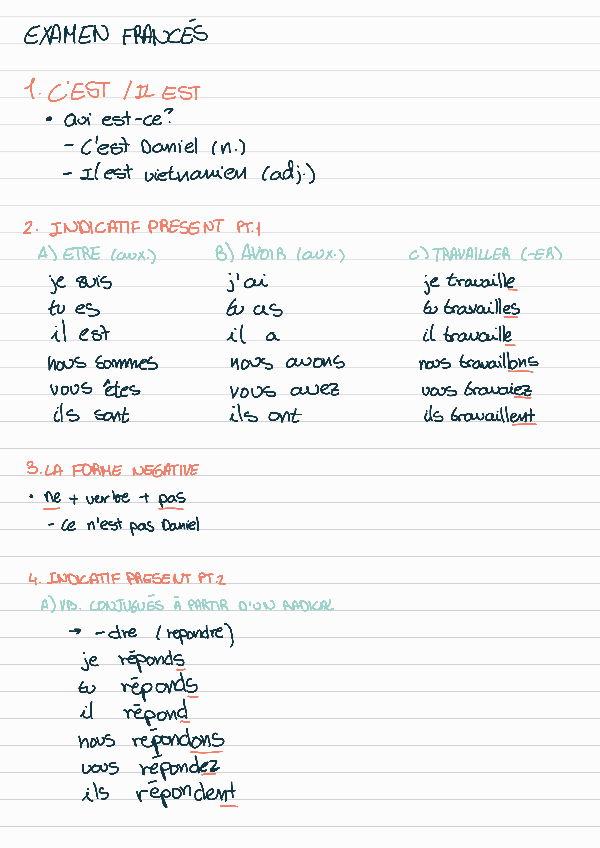 EXAMEN FRANCÉS
1. C'EST / IL EST
• Qui est-ce?
- C'est Daniel (n.)
- Il est vietnamien (adj.)
2. INDICATIF PRESENT PT.1
A) ETRE (aux.) B) AVOIR (aux.) C) TRAVAILLER (-ER)
je suis j'ai je travaille
tu es tu as tu travailles
il est il a il travaille
nous sommes nous avons nous travaillons
vous êtes vous avez vous travaiez
ils sont ils ont ils travaillent
3. LA FORME NEGATIVE
• ne + verbe + pas
- Ce n'est pas Daniel
4. INDICATIF PRESENT PT.2
A) VB. CONJUGUÉS À PARTIR D'UN RADICAL
→ -dre (repondre)
je réponds
tu réponds
il répond
nous répondons
vous répondez
ils répondent